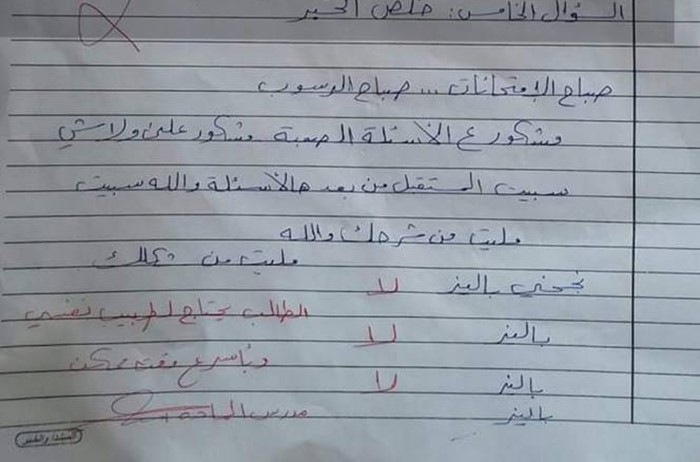 السؤال الخامس: خلص الحبر
صباح الإمتحانات ... صباح الرسوب
مشكور ع الأسئلة الصعبة مشكور على ولاشي
نسيت المستقبل من بعد هالأسئلة والله نسيت
مليت من شرحك والله
مليت من
نجحني بليز لا
الطالب يحتاج لطبيب نفسي
بليز لا
وبأسرع وقت ممكن
بليز لا
بليز مدرس المادة